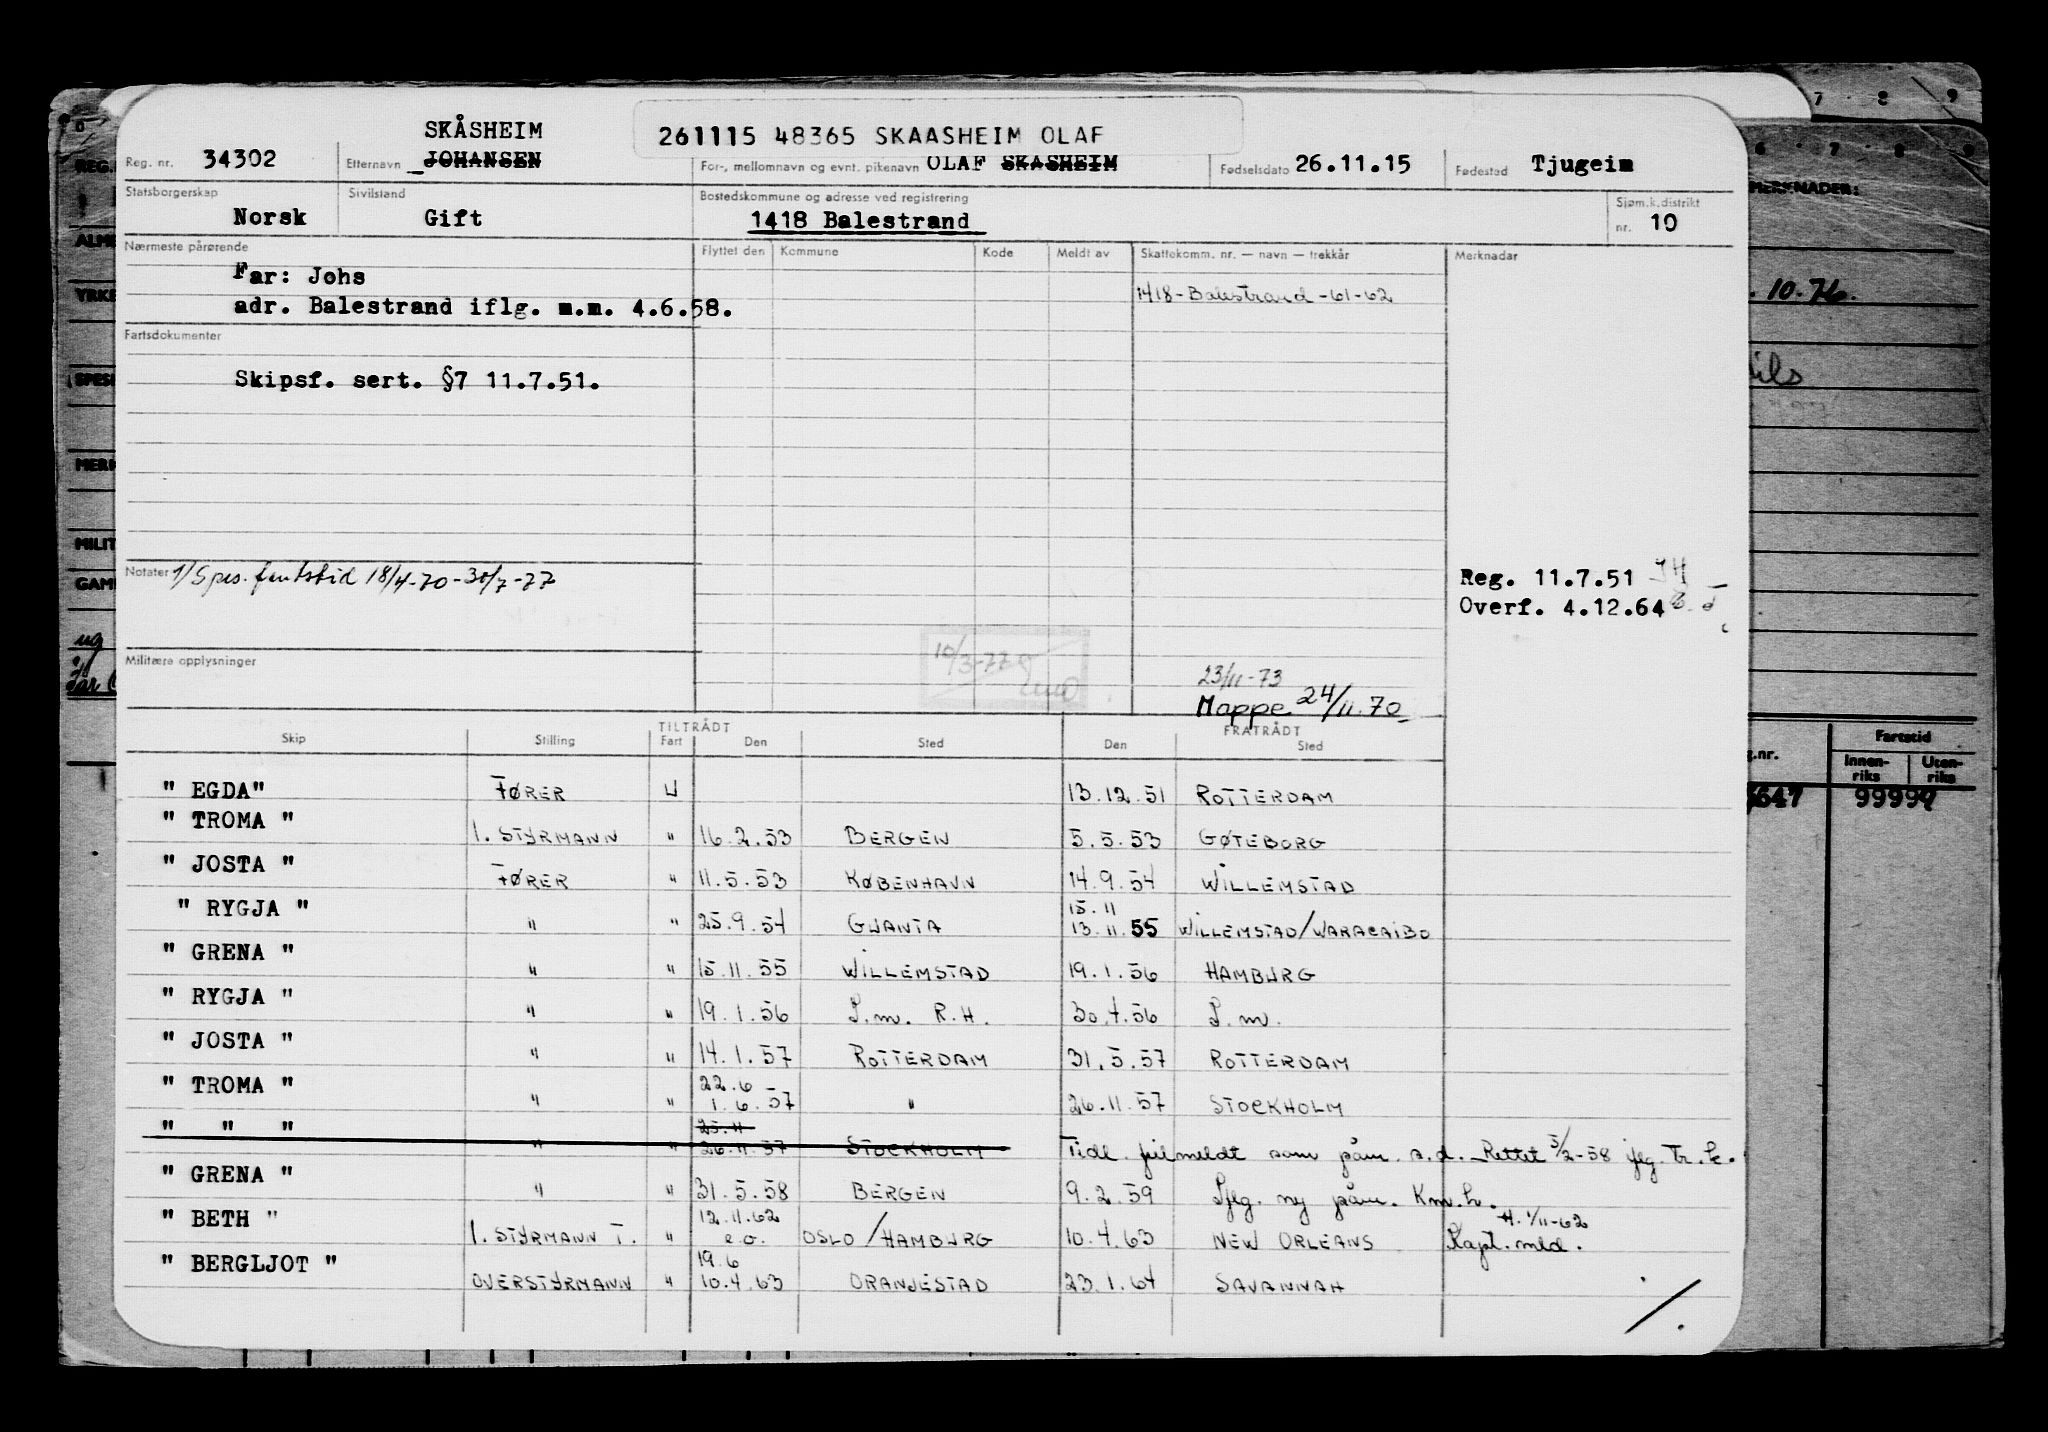 SKÅSHEIM
261115 48365 SKAASHEIM OLAF
Reg. nr. 34302 Etternavn JOHANSEN For-, mellomnavn og evnt. pikenavn OLAF SKASHEIM Fødselsdato 26.11.15 Fødested Tjugeim
Statsborgerskap Norsk Sivilstand Gift Bostedskommune og adresse ved registrering 1418 Balestrand Sjøm.k.distrikt nr. 10
Nærmeste pårørende Flyttet den Kommune Kode Meldt av Skattekomm. nr. — navn — trekkår Merknader
Far: Johs
1418-Balestrand-61-62
adr. Balestrand iflg. m.m. 4.6.58.
Fartsdokumenter
Skipsf. sert. §7 11.7.51.
Notater 1/ Spes. fartstid 18/4-70-30/7-77
Reg. 11.7.51
Overf. 4.12.64
Militære opplysninger
10/3-77
23/11-73
Mappe 24/11.70
TILTRÅDT FRATRÅDT
Skip Stilling Fart Den Sted Den Sted
" EGDA" FØRER U 13.12.51 ROTTERDAM
" TROMA " 1. STYRMANN " 16.2.53 BERGEN 5.5.53 GØTEBORG
" JOSTA " FØRER " 11.5.53 KØBENHAVN 14.9.54 WILLEMSTAD
15.11
" RYGJA " " " 25.9.54 GUANTA 13.11.55 WILLEMSTAD/MARACAIBO
" GRENA " " " 15.11.55 WILLEMSTAD 19.1.56 HAMBURG
" RYGJA " " " 19.1.56 P.m. R.H. 30.4.56 P.m.
" JOSTA " " " 14.1.57 ROTTERDAM 31.5.57 ROTTERDAM
22.6
" TROMA " " " 1.6.57 " 26.11.57 STOCKHOLM
25.11
" " " " " 26.11.57 STOCKHOLM Tidl. feilmeldt som påm. s.d. Rettet 5/2-58 iflg. Tr.k.
" GRENA " " " 31.5.58 BERGEN 9.2.59 Iflg. ny påm. Km.h.
12.11.62 H. 1/11-62
" BETH " 1. STYRMANN T. " e.o. OSLO/HAMBURG 10.4.63 NEW ORLEANS Kapt. mld.
19.6
" BERGLJOT " OVERSTYRMANN " 10.4.63 ORANJESTAD 23.1.64 SAVANNAH
7 8 9
6 7 8 9
MERKNADER:
10-76.
Fartstid
Innen-riks Uten-riks
647 99999